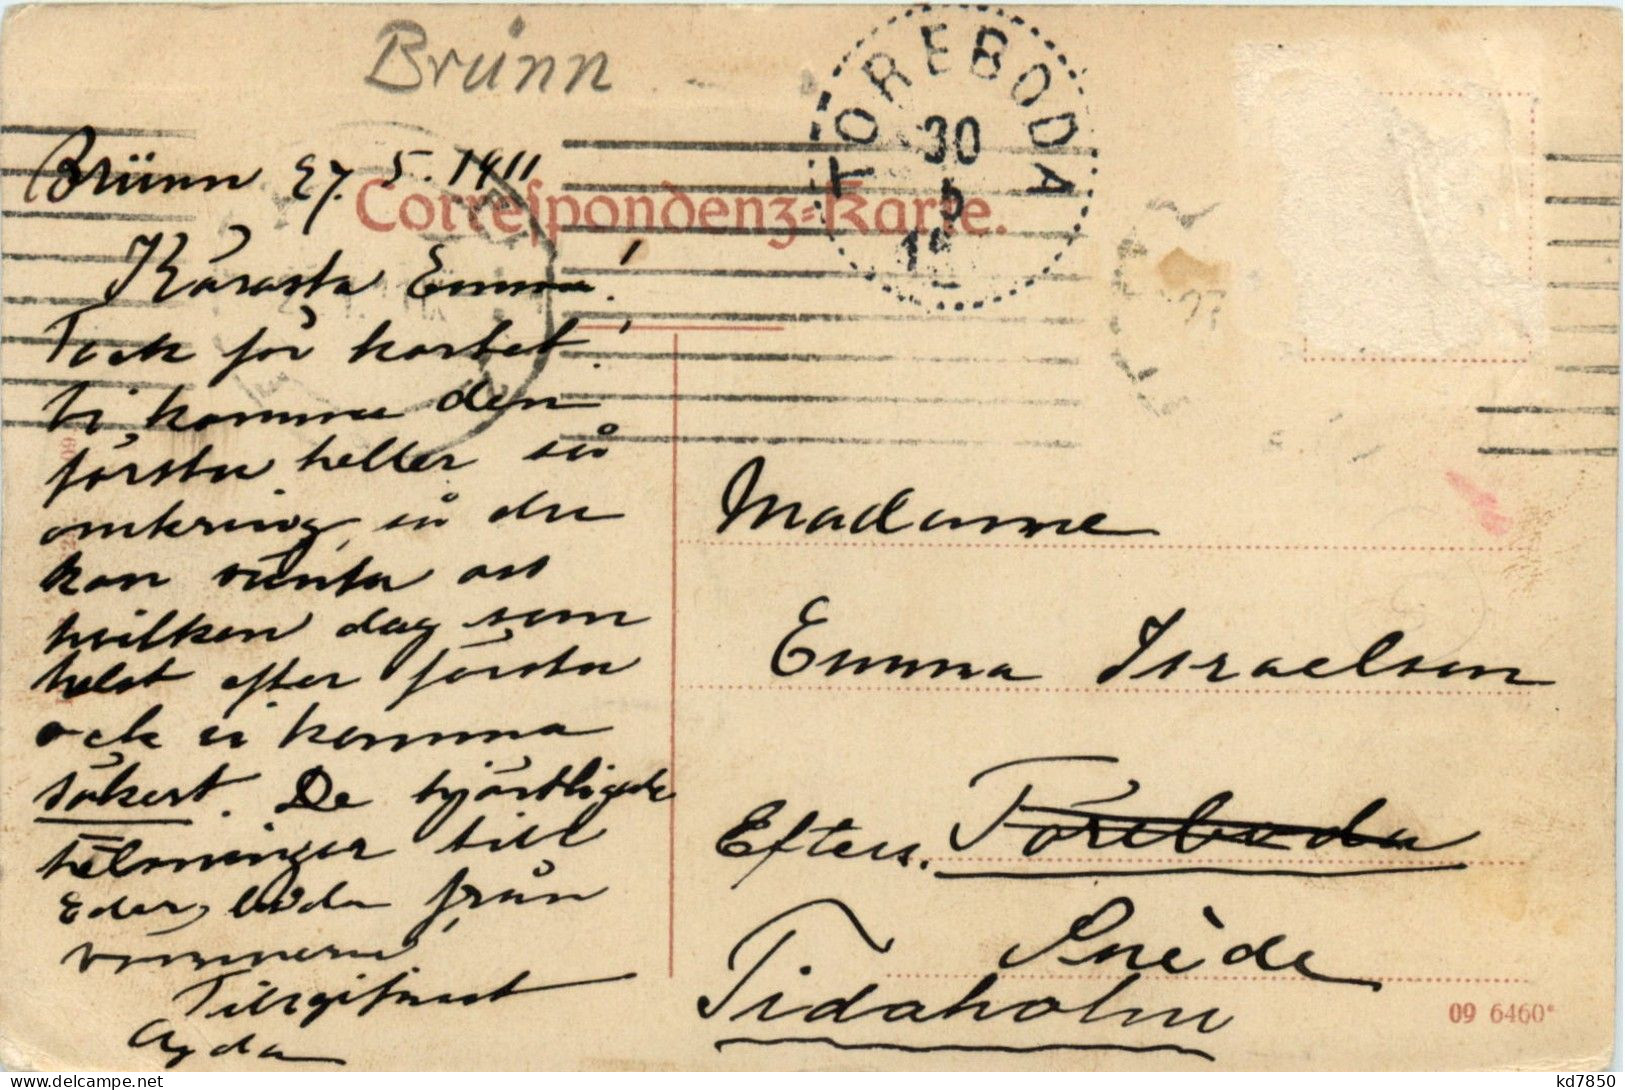 Brünn
Brünn 27. 5. 1911
Correspondenz-Karte.
TÖREBODA
30
5
Käraste Emma!
Tack för kortet!
Vi komma den
första heller så
omkring, så du
kan vänta oss
hvilken dag som
helst efter första
och vi komma
säkert. De hjärtligaste
helsningar till
Eder, båda från
Tillgifnast
Agda
Madame
Emma Israelson
Efters. Töreboda
Suède
Tidaholm
09 6460*
kd7850